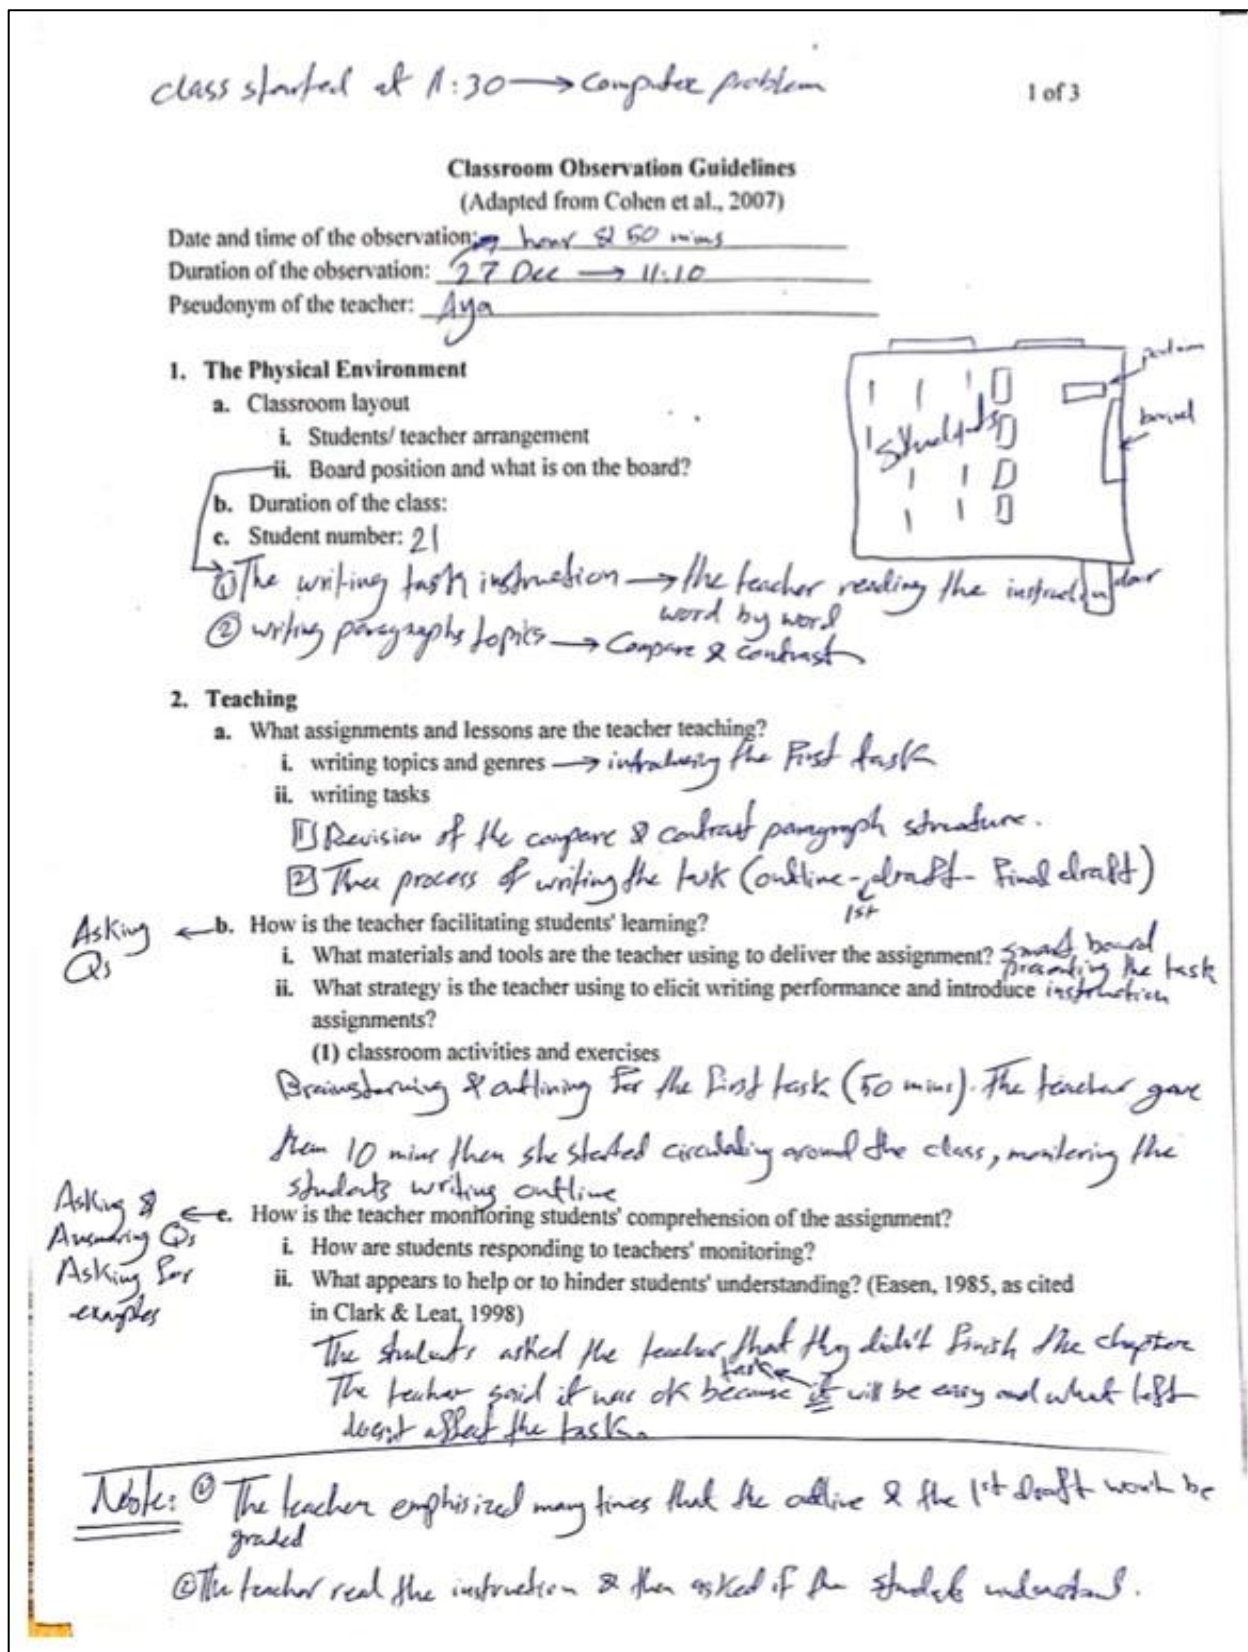 class started at 11:30 → Computer problem
1 of 3
Classroom Observation Guidelines
(Adapted from Cohen et al., 2007)
Date and time of the observation: hour & 50 mins
Duration of the observation: 27 Dec → 11:10
Pseudonym of the teacher: Aya
1. The Physical Environment
a. Classroom layout
i. Students/ teacher arrangement
ii. Board position and what is on the board?
b. Duration of the class:
c. Student number: 21
students
board
door
① The writing task instruction → the teacher reading the instruction
word by word
② writing paragraphs topics → Compare & contrast
2. Teaching
a. What assignments and lessons are the teacher teaching?
i. writing topics and genres → introducing the First task
ii. writing tasks
1 Revision of the compare & contrast paragraph structure.
2 Three process of writing the task (outline - draft - Final draft)
1st
Asking
Qs
b. How is the teacher facilitating students' learning?
i. What materials and tools are the teacher using to deliver the assignment? smart board
presenting the task
ii. What strategy is the teacher using to elicit writing performance and introduce instruction
assignments?
(1) classroom activities and exercises
Brainstorming & outlining For the First task (50 mins). The teacher gave
them 10 mins then she started circulating around the class, monitering the
students writing outline
Asking &
Answering Qs
Asking For
examples
c. How is the teacher monitoring students' comprehension of the assignment?
i. How are students responding to teachers' monitoring?
ii. What appears to help or to hinder students' understanding? (Easen, 1985, as cited
in Clark & Leat, 1998)
The students asked the teacher that they didn't finish the chapter
task
The teacher said it was ok because it will be easy and what left
doesn't affect the task.
Note: ① The teacher emphisized many times that the outline & the 1st draft won't be
graded
② The teacher read the instruction & then asked if the students understand.